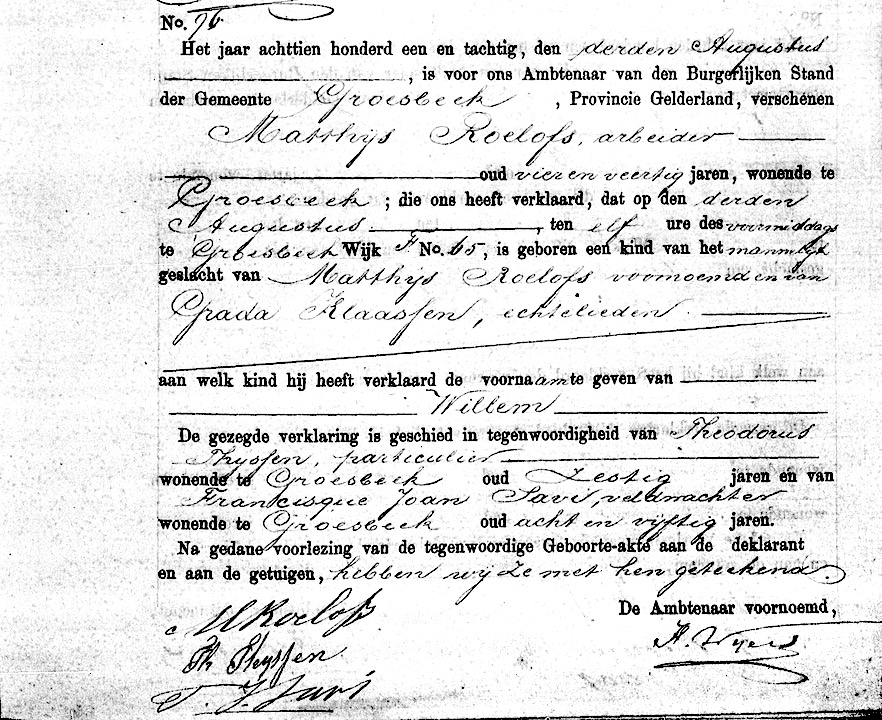 No. 76
Het jaar achttien honderd een en tachtig, den derden Augustus
, is voor ons Ambtenaar van den Burgerlijken Stand
der Gemeente Groesbeek , Provincie Gelderland, verschenen
Matthijs Roelofs, arbeider
oud vier en veertig jaren, wonende te
Groesbeek ; die ons heeft verklaard, dat op den derden
Augustus , ten elf ure des voormiddags
te Groesbeek Wijk F No. 65, is geboren een kind van het mannelijk
geslacht van Matthijs Roelofs voornoemd en van
Grada Klaassen, echtelieden.
aan welk kind hij heeft verklaard de voornaam te geven van
Willem
De gezegde verklaring is geschied in tegenwoordigheid van Theodorus
Thyssen, particulier
wonende te Groesbeek oud Zestig jaren en van
Francisque Joan Savi, veldwachter
wonende te Groesbeek oud acht en vijftig jaren.
Na gedane voorlezing van de tegenwoordige Geboorte-akte aan de deklarant
en aan de getuigen, hebben wij ze met hen geteekend.
De Ambtenaar voornoemd,
M Roelofs
Th Thyssen